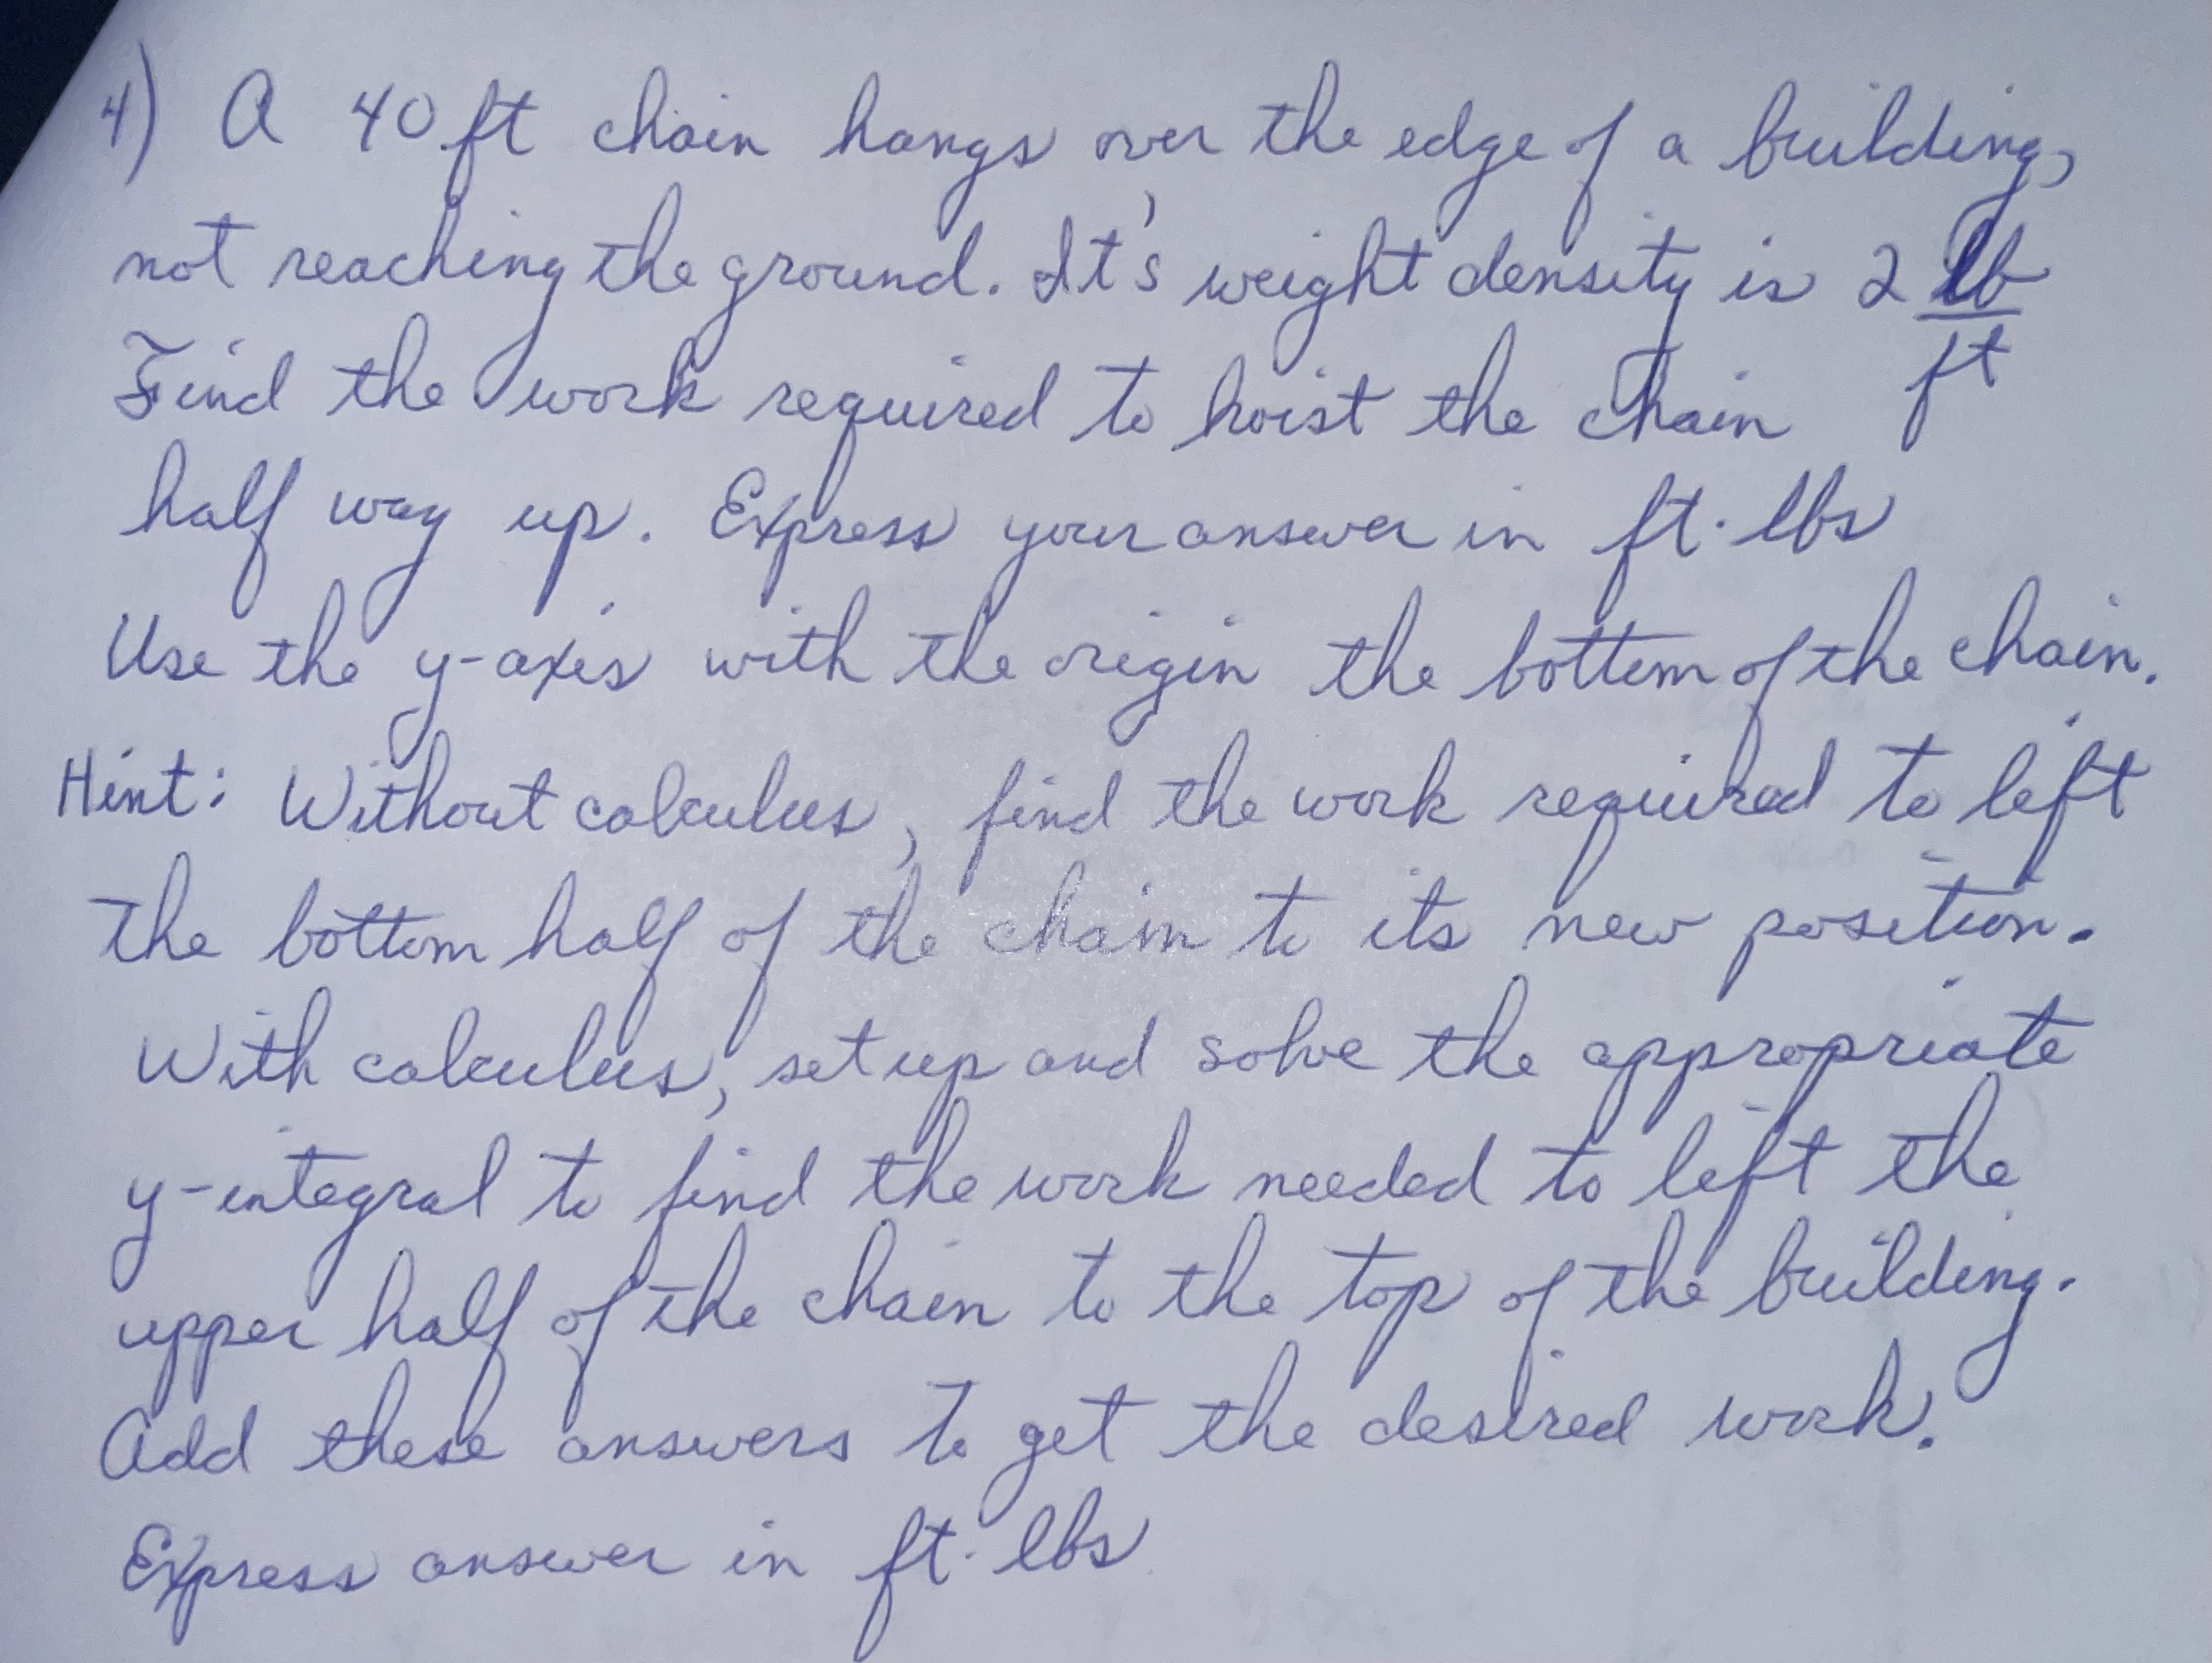 4) A 40 ft chain hangs over the edge of a building,
not reaching the ground. It's weight density is 2 lb/ft
Find the work required to hoist the chain
half way up. Express your answer in ft. lbs
Use the y-axis with the origin the bottom of the chain.
Hint: Without calculus, find the work required to left
the bottom half of the chain to its new position.
With calculus, set up and solve the appropriate
y-integral to find the work needed to left the
upper half of the chain to the top of the building.
Add these answers to get the desired work.
Express answer in ft. lbs